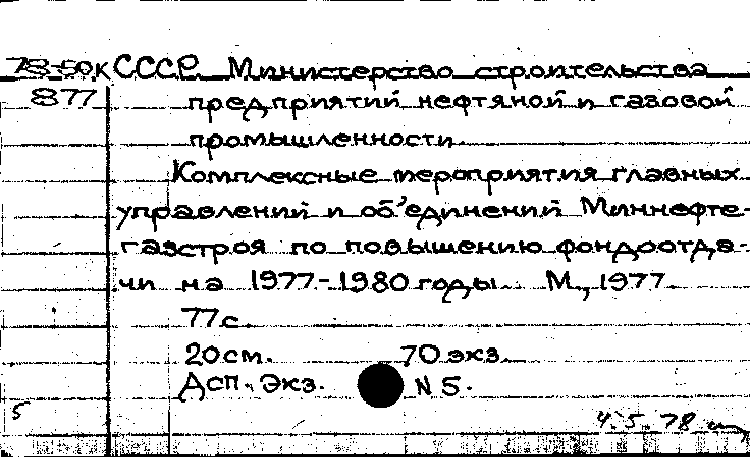 78-50к СССР. Министерство строительства
877 предприятий нефтяной и газовой
промышленности.
Комплексные мероприятия главных
управлений и об'единений Миннефте-
газстроя по повышению фондоотда-
чи на 1977-1980 годы. М., 1977.
77 с.
20 см. 70 экз.
Дсп. Экз. N 5.
5 4.5.78